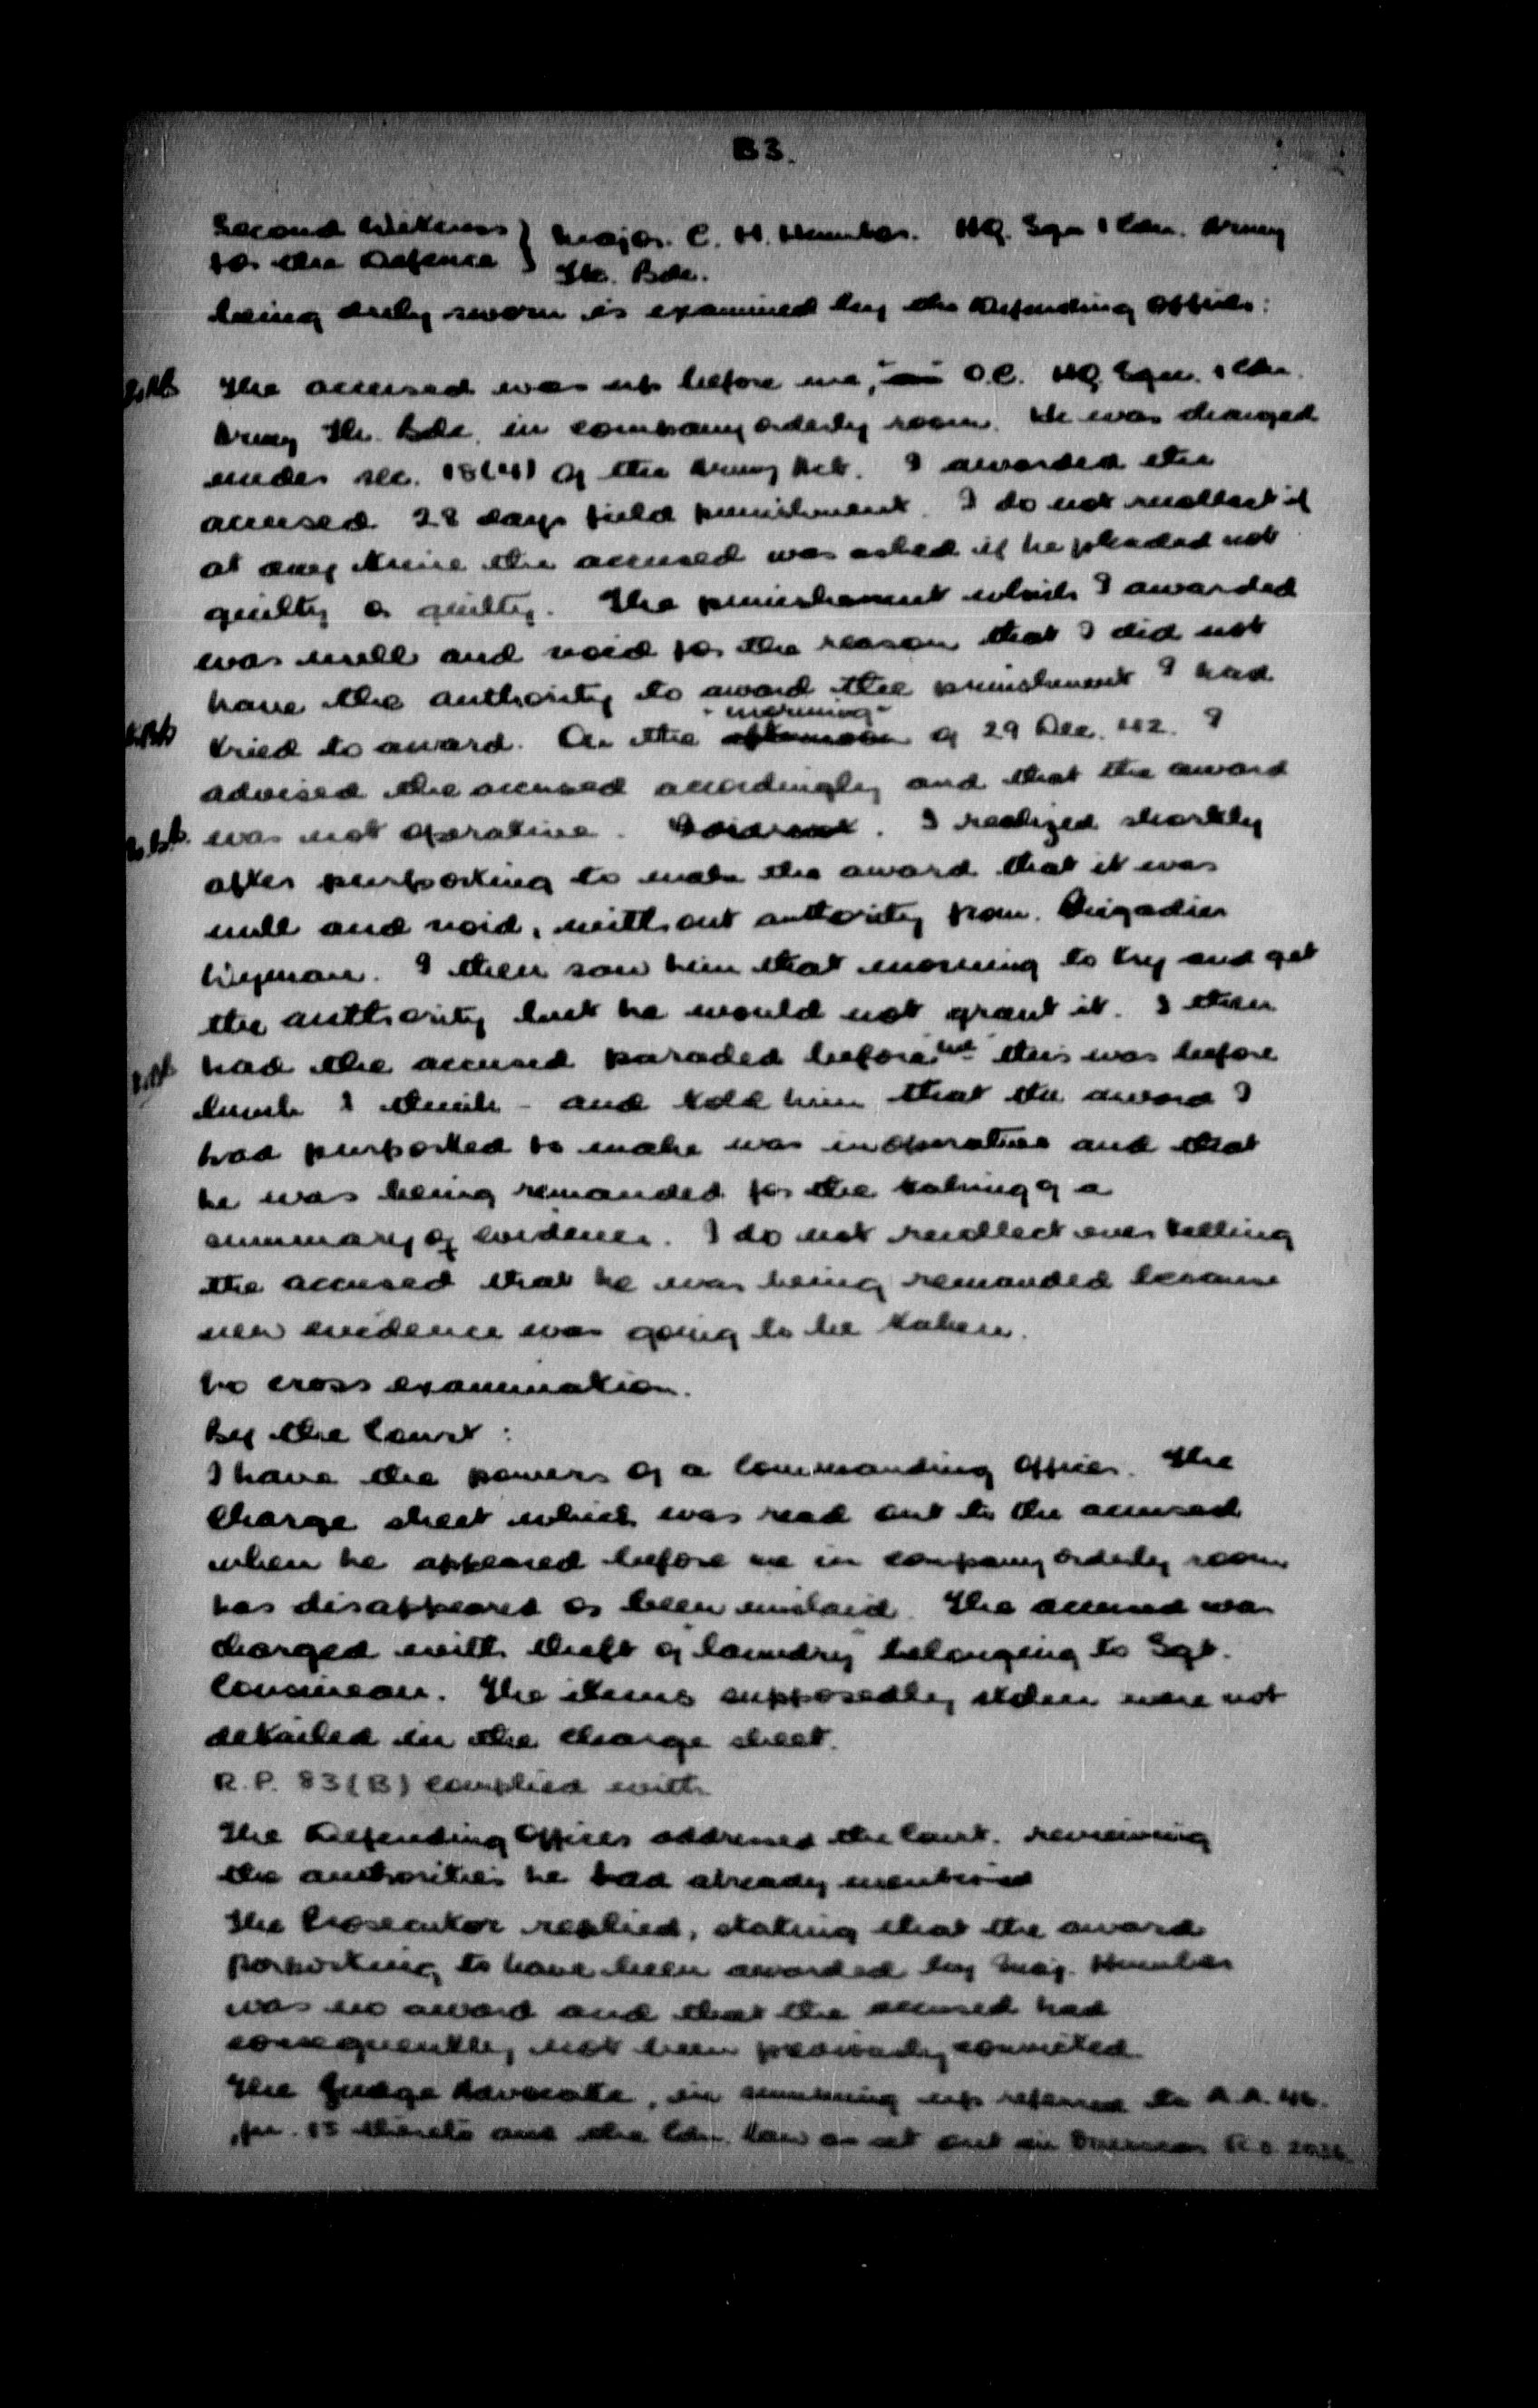 B3.
Second Witness } Major. C. H. HQ. Sqn 1 Cdn. Army
for the Defence } Tk. Bde.
being duly sworn is examined by the Defending Officer:
The accused was up before me, O.C. HQ Sqn. 1 Cdn.
Army Tk. Bde. in company orderly room. He was charged
under sec. 18(4) of the Army Act. I awarded the
accused 28 days field punishment. I do not recollect if
at any time the accused was asked if he pleaded not
guilty or guilty. The punishment which I awarded
was null and void for the reason that I did not
have the authority to award the punishment I had
tried to award. On the afternoon morning of 29 Dec. 42. I
advised the accused accordingly and that the award
was not operative. I did not. I realized shortly
after purporting to make the award that it was
null and void, without authority from Brigadier
Wyman. I then saw him that morning to try and get
the authority but he would not grant it. I then
had the accused paraded before this was before
lunch I think - and told him that the award I
had purported to make was inoperative and that
he was being remanded for the taking of a
summary of evidence. I do not recollect ever telling
the accused that he was being remanded because
new evidence was going to be taken.
No cross examination.
By the Court:
I have the powers of a Commanding Officer. The
charge sheet which was read out to the accused
when he appeared before me in company orderly room
has disappeared or been mislaid. The accused was
charged with theft of laundry belonging to Sgt.
Cousineau. The items supposedly stolen were not
detailed in the charge sheet.
R.P. 83(B) complied with
The Defending Officer addressed the Court. reviewing
the authorities he had already mentioned
The Prosecutor replied, stating that the award
purporting to have been awarded by Maj.
was no award and that the accused had
consequently not been previously convicted.
The Judge Advocate, in summing up referred to A.A. 46.
para. 15 thereto and the Cdn. law as set out in Overseas R.O.